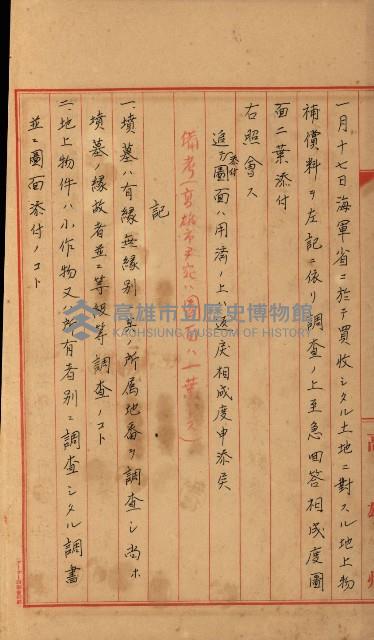 一月十七日海軍省ニ於テ買收シタル土地ニ對スル地上物
補償料ヲ左記ニ依リ調查ノ上至急回答相成度圖
面二葉添付
右照會ス
追テ添付圖面ハ用濟ノ上ハ返戾相成度申添候
備考(高雄市尹宛ハ圖面ハ一葉トス)
記
一、墳墓ハ有緣無緣別其ノ所屬地番ヲ調查シ尚ホ
墳墓ノ緣故者並ニ等級等調查ノコト
二、地上物件ハ小作物又ハ所有者別ニ調查シタル調書
並ニ圖面添付ノコト
高雄州
高雄市立歷史博物館
KAOHSIUNG MUSEUM OF HISTORY